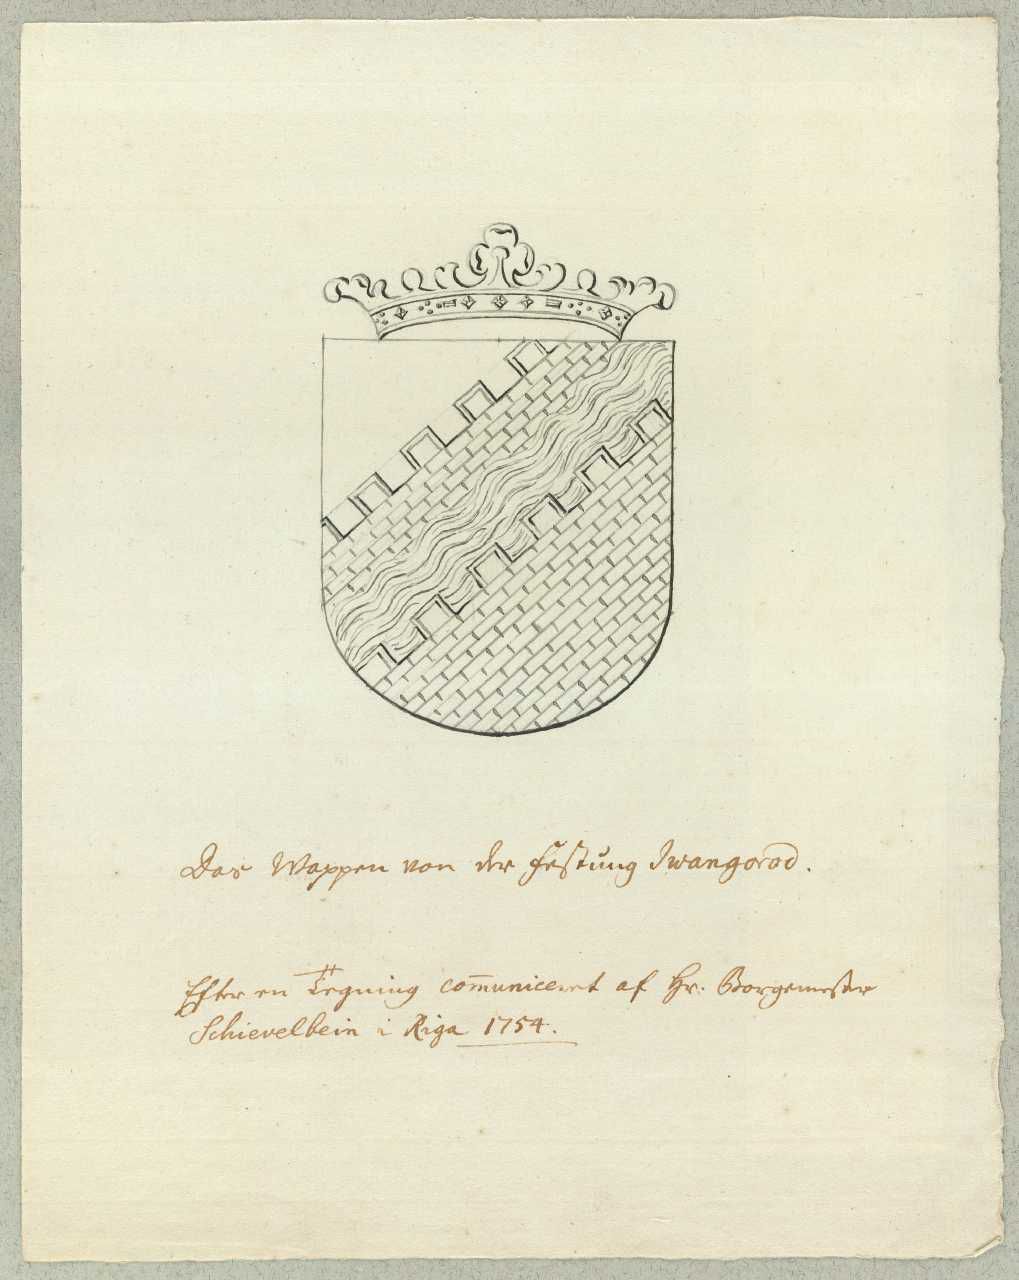 Das Wappen von der Festung Iwangorod.
Efter en Tegning com̅uniceret af Hr. Borgemester
Schievelbein i Riga 1754.